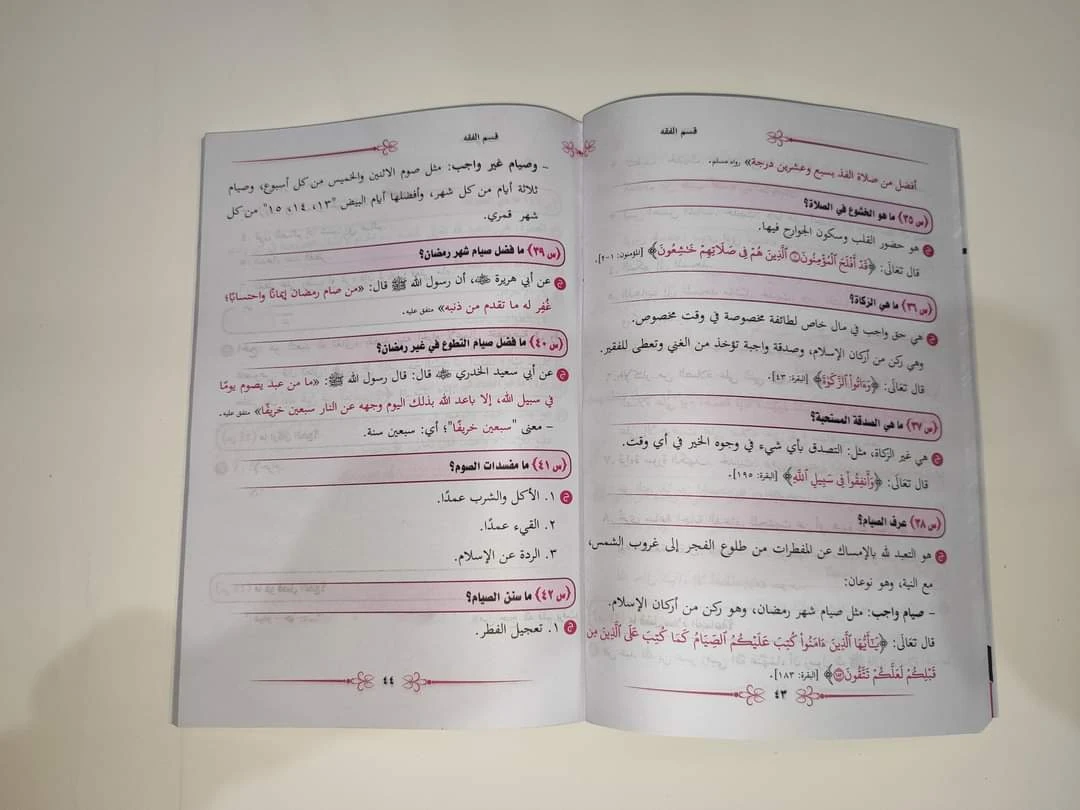 قسم الفقه
أفضل من صلاة الفذ بسبع وعشرين درجة» رواه مسلم.
س ٣٥) ما هو الخشوع في الصلاة؟
ج هو حضور القلب وسكون الجوارح فيها.
قال تعالى: ﴿قَدْ أَفْلَحَ ٱلْمُؤْمِنُونَ ۝ ٱلَّذِينَ هُمْ فِى صَلَاتِهِمْ خَـٰشِعُونَ﴾ [المؤمنون: ١-٢].
س ٣٦) ما هي الزكاة؟
ج هي حق واجب في مال خاص لطائفة مخصوصة في وقت مخصوص.
وهي ركن من أركان الإسلام، وصدقة واجبة تؤخذ من الغني وتعطى للفقير.
قال تعالى: ﴿وَءَاتُوا۟ ٱلزَّكَوٰةَ﴾ [البقرة: ٤٣].
س ٣٧) ما هي الصدقة المستحبة؟
ج هي غير الزكاة، مثل: التصدق بأي شيء في وجوه الخير في أي وقت.
قال تعالى: ﴿وَأَنفِقُوا۟ فِى سَبِيلِ ٱللَّهِ﴾ [البقرة: ١٩٥].
س ٣٨) عرف الصيام؟
ج هو التعبد لله بالإمساك عن المفطرات من طلوع الفجر إلى غروب الشمس،
مع النية، وهو نوعان:
- صيام واجب: مثل صيام شهر رمضان، وهو ركن من أركان الإسلام.
قال تعالى: ﴿يَـٰٓأَيُّهَا ٱلَّذِينَ ءَامَنُوا۟ كُتِبَ عَلَيْكُمُ ٱلصِّيَامُ كَمَا كُتِبَ عَلَى ٱلَّذِينَ مِن
قَبْلِكُمْ لَعَلَّكُمْ تَتَّقُونَ ۝﴾ [البقرة: ١٨٣].
٤٣
قسم الفقه
- وصيام غير واجب: مثل صوم الاثنين والخميس من كل أسبوع، وصيام
ثلاثة أيام من كل شهر، وأفضلها أيام البيض "١٣، ١٤، ١٥" من كل
شهر قمري.
س ٣٩) ما فضل صيام شهر رمضان؟
ج عن أبي هريرة ﵁، أن رسول الله ﷺ قال: «من صام رمضان إيمانًا واحتسابًا؛
غُفِر له ما تقدم من ذنبه» متفق عليه.
س ٤٠) ما فضل صيام التطوع في غير رمضان؟
ج عن أبي سعيد الخدري ﵁ قال: قال رسول الله ﷺ: «ما من عبد يصوم يومًا
في سبيل الله، إلا باعد الله بذلك اليوم وجهه عن النار سبعين خريفًا» متفق عليه.
- معنى "سبعين خريفًا"؛ أي: سبعين سنة.
س ٤١) ما مفسدات الصوم؟
ج ١. الأكل والشرب عمدًا.
٢. القيء عمدًا.
٣. الردة عن الإسلام.
س ٤٢) ما سنن الصيام؟
ج ١. تعجيل الفطر.
٤٤